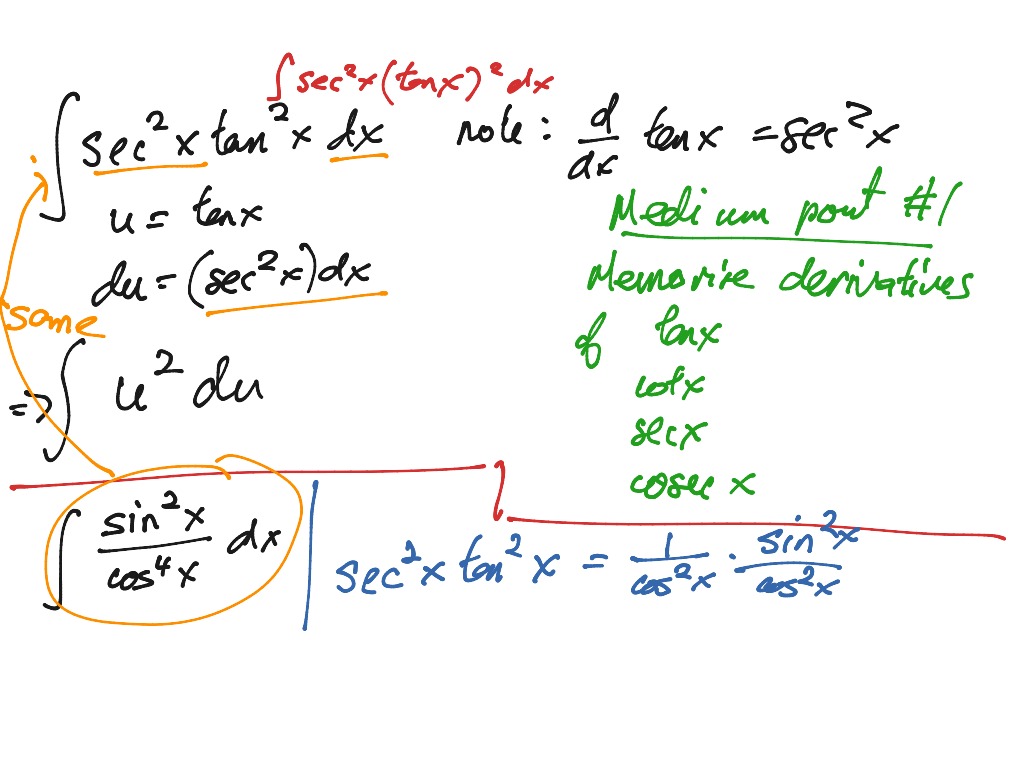 ∫ sec²x (tanx)² dx
∫ sec²x tan²x dx
note : d/dx tanx = sec²x
u = tanx
du = (sec²x)dx
same
=> ∫ u² du
Medium pont #1
Memorise derivatives
of tanx
cotx
secx
cosec x
∫ sin²x/cos⁴x dx
sec²x tan²x = 1/cos²x · sin²x/cos²x